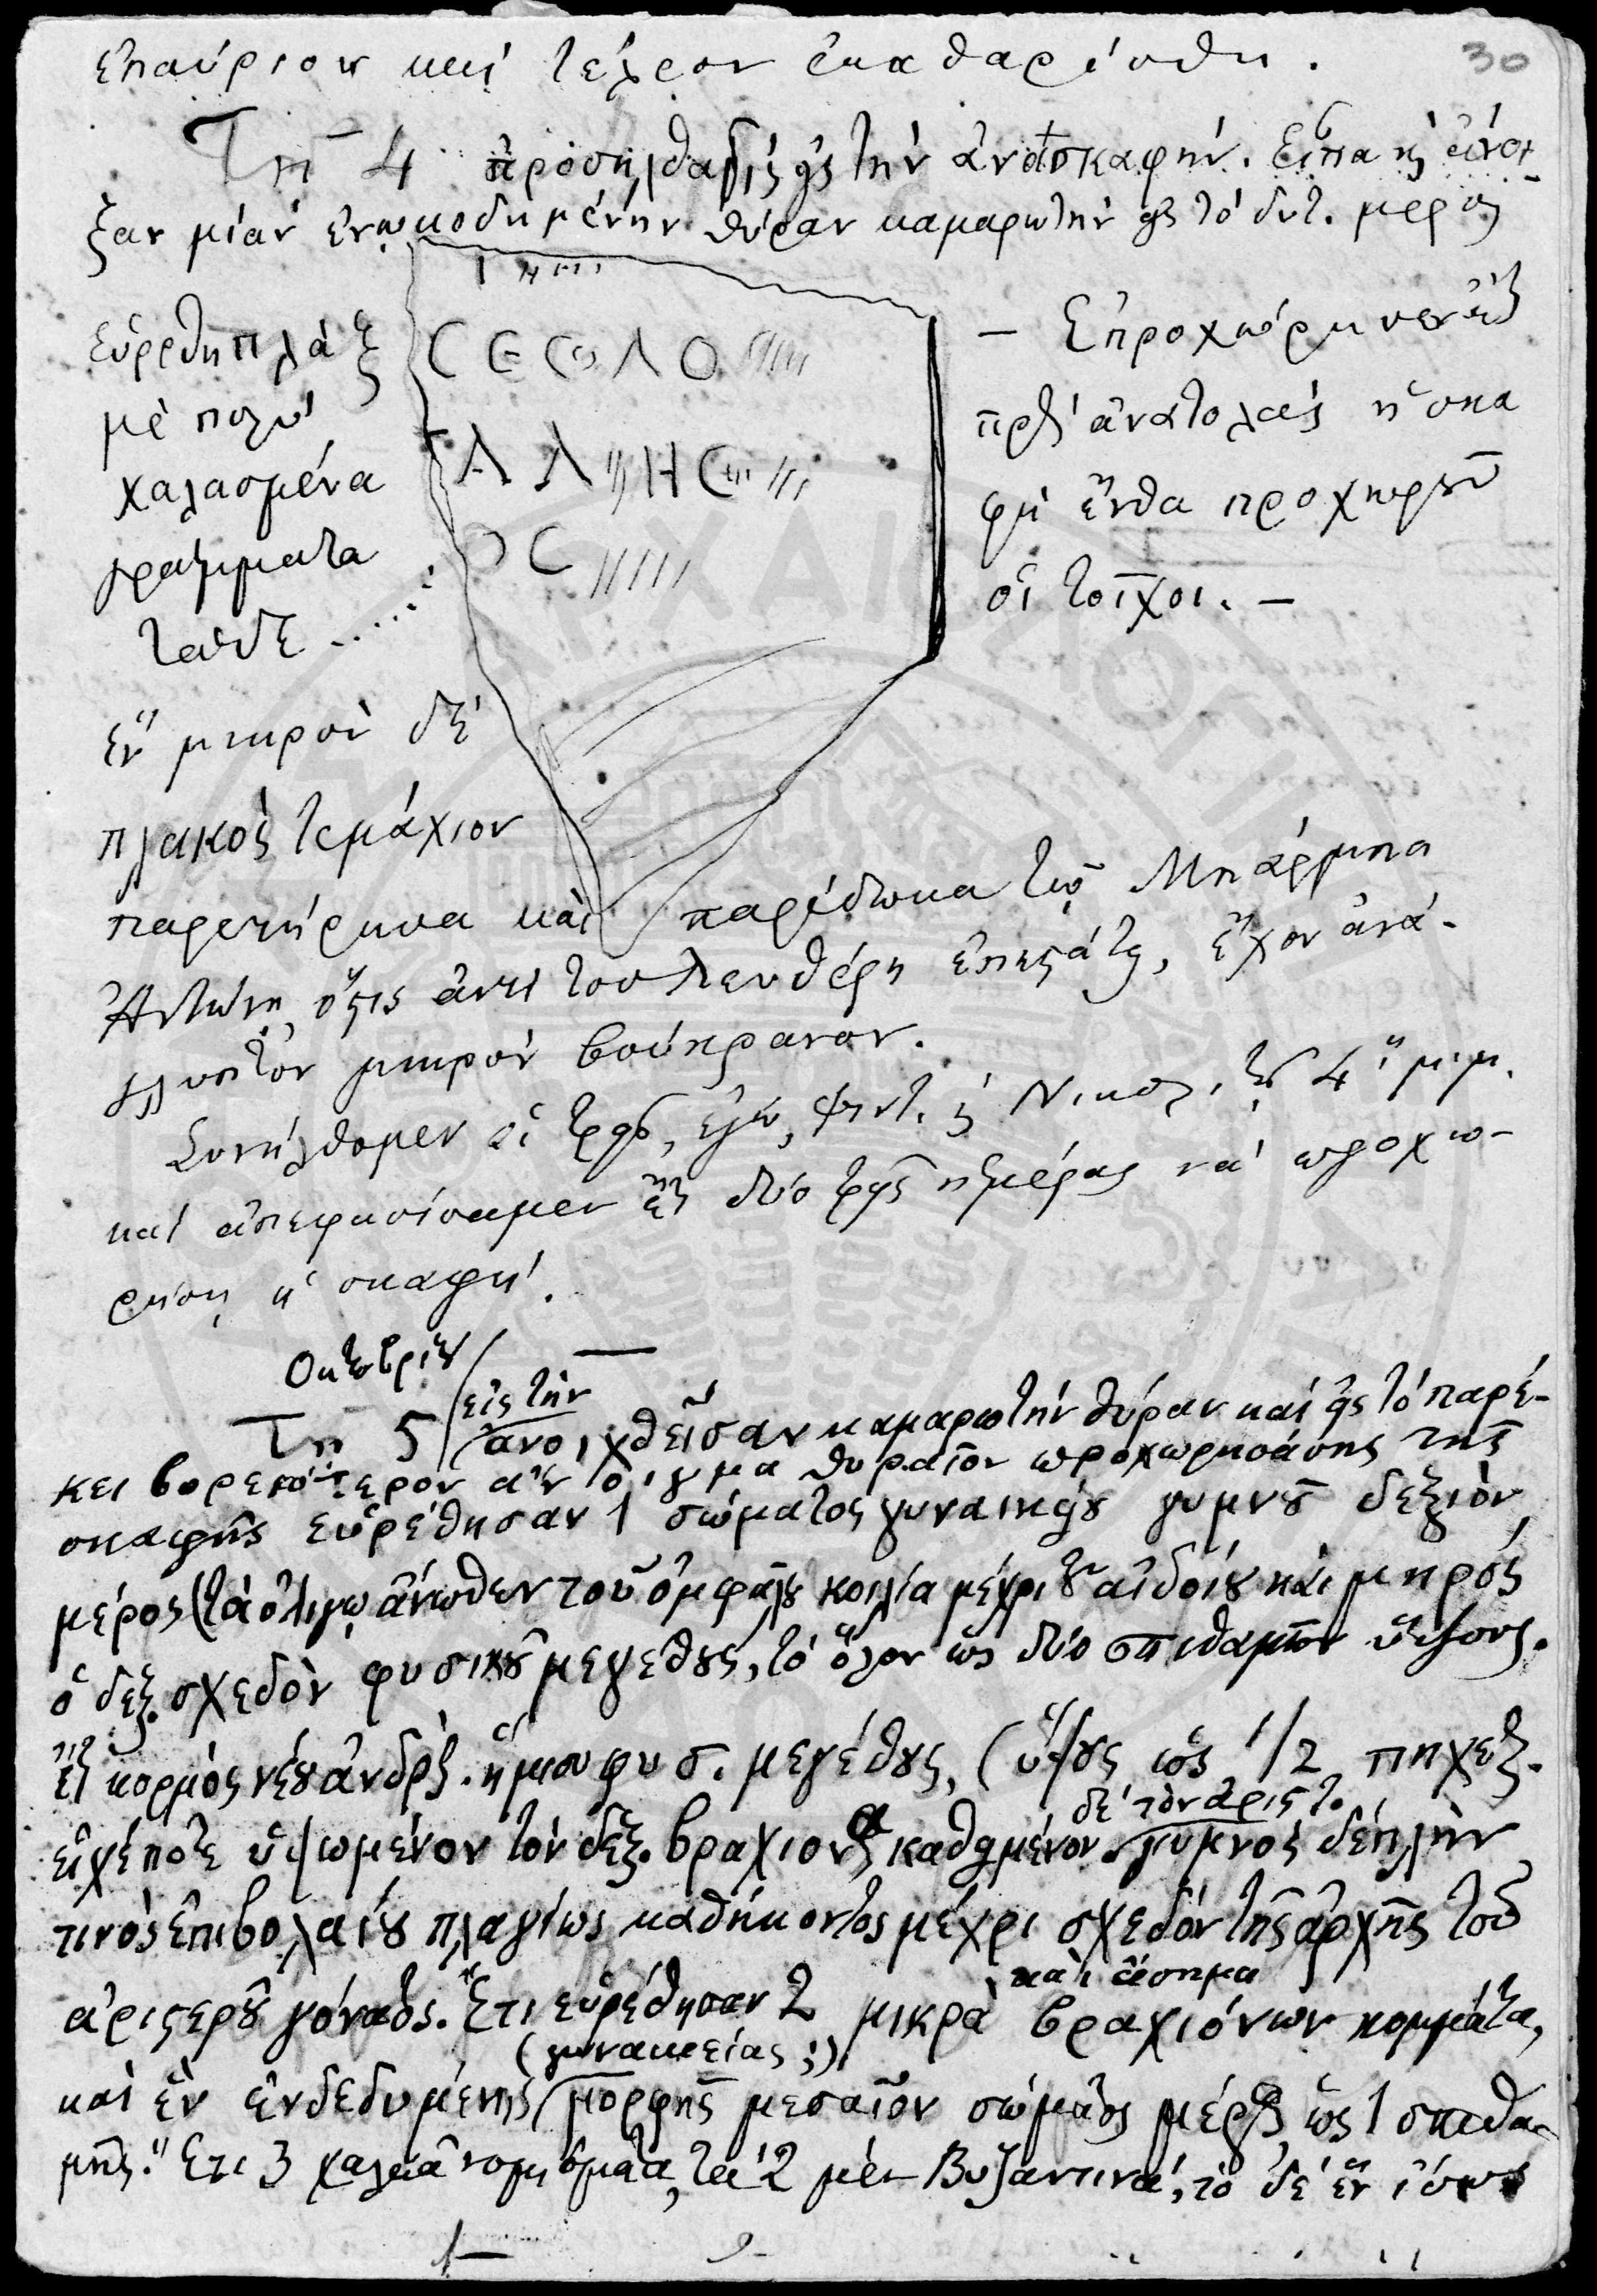 30
ἐπαύριον καὶ ἐκαθαρίσθη.
Τῇ 4 προσῆλθα εἰς τὴν ἀνασκαφήν. Εἶπα κὶ ἄνοι-
ξαν μίαν ἐνῳκοδημένην θύραν καμαρωτὴν εἰς τὸ δυτ. μέρος
Εὑρέθη πλὰξ
μὲ πολὺ
χαλασμένα
γράμματα
ταῦτα ......
C Є C Θ Λ Ο
Α Λ Η C
Ο C
– Ἐπροχώρησεν
πρὸς ἀνατολὰς ἡ σκα
φὴ ἔνθα προχωροῦν
οἱ τοῖχοι. –
ἓν μικρὸν δὲ
πλακὸς τεμάχιον
παρετήρησα καὶ παρέδωκα τῷ Μπάρμπα
Ἀντώνη ὅστις ἀντὶ τοῦ Λευθέρη ἐπεστάτει, ἔχον ἀνά-
γλυπτον μικρὸν βούκρανον.
Συνήλθομεν οἱ τρεῖς, ἐγώ, Ψιντ. κ Νικολ. 4 μ.μ.
καὶ ἀπεφασίσαμεν δύο τρεῖς ἡμέρας νὰ προχω-
ρήσῃ ἡ σκαφή.
Ὀκτωβρίου
Τῇ 5 εἰς τὴν
ἀνοιχθεῖσαν καμαρωτὴν θύραν καὶ εἰς τὸ παρέ-
κει βορειότερον ἄνοιγμα θυραῖον προχωρησάσης τῆς
σκαφῆς εὑρέθησαν 1 σώματος γυναικείου γυμνοῦ δεξιὸν
μέρος (τὰ ὀλίγῳ ἄνωθεν τοῦ ὀμφαλοῦ κοιλία μέχρι τοῦ αἰδοίου καὶ μηρός
ὁ δεξ. σχεδὸν φυσικοῦ μεγέθους, τὸ ὅλον ὡς δύο σπιθαμῶν ὕψους.
Εἷς κορμὸς νέου ἀνδρὸς. ἥμισυ φυσ. μεγέθους, (ὕψους ὡς 1/2 πήχεως.
εἶχέ ποτε ὑψωμένον τὸν δεξ. βραχίονα καθειμένον δὲ τὸν ἀριστ. γυμνὸς δὲ πλὴν
τινὸς ἐπιβολαίου πλαγίως καθήκοντος μέχρι σχεδὸν τῆς ἀρχῆς τοῦ
ἀριστεροῦ γόνατος. Ἔτι εὑρέθησαν 2 μικρὰ καὶ ἄσημα βραχιόνων κομμάτια,
καὶ ἓν ἐνδεδυμένης (γυναικείας;) μορφῆς μεσαῖον σώματος μέρος ὡς 1 σπιθα-
μῆς. Ἔτι 3 χαλκᾶ νομίσματα, τὰ 2 μὲν Βυζαντινά, τὸ δὲ ἓν ἴσως